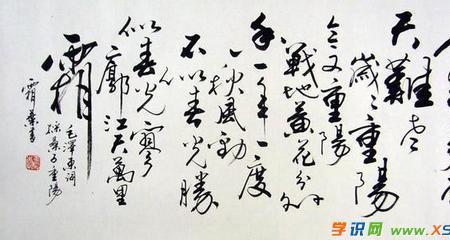 天難老
歲〻重陽
今又重陽
戰地黃花分外
香一年一度
秋風勁
不似春光勝
似春光寥
廓江天萬里
霜
毛澤東詞
採桑子重陽
霜葉書
学识网 www.xs